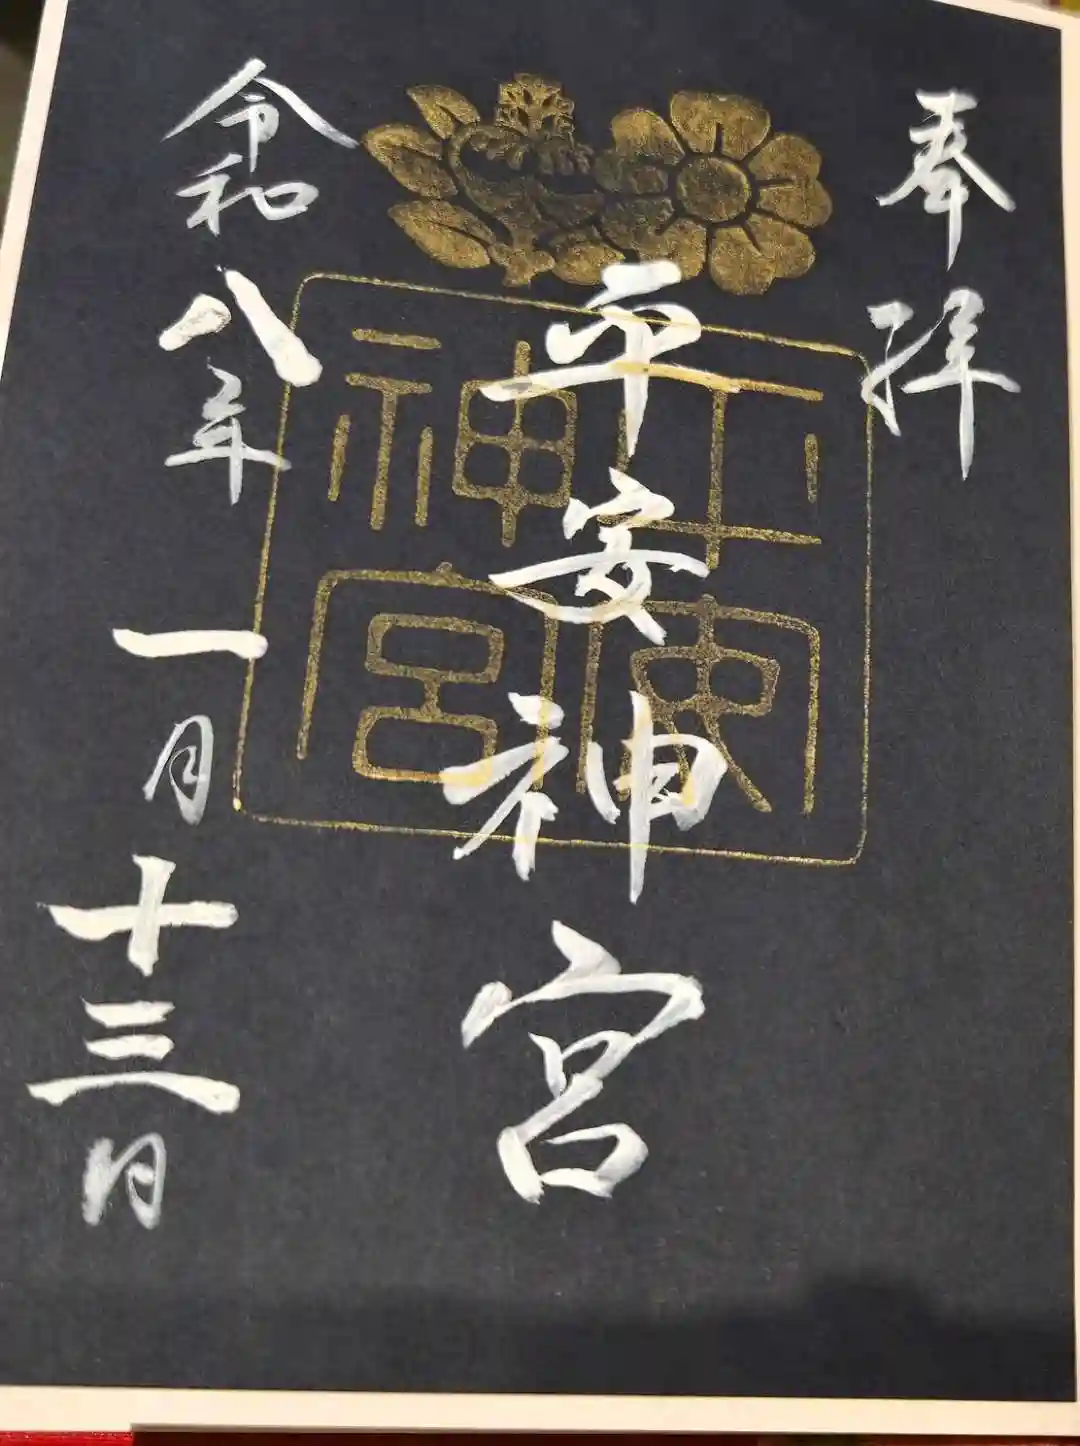 奉拝
平安神宮
令和八年 一月十三日
平安
神宮